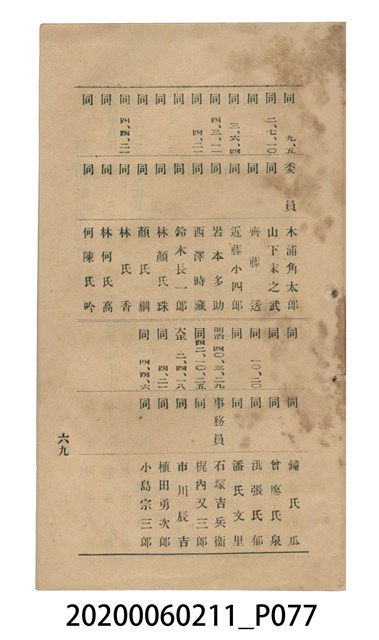 同 九、五 委員 木浦角太郎
同 二、七、一〇 同 山下末之武
同 同 齊藤透
同 三、六、四 同 近藤小四郎
同 四、三、一一 同 岩本多助
同 四、二一 同 西澤時藏
同 同 鈴木長一郎
同 同 林顏氏珠
同 同 顏氏綢
同 四、四、二一 同 林氏香
同 同 林何氏高
同 同 何陳氏吟
同 同 鐘氏瓜
同 同 曾廖氏泉
同 一〇、二〇 同 洪張氏郁
同 同 潘氏文里
明治四〇、三、二九 事務員 石塚吉兵衞
同四二、一〇、二五 同 梶內又三郎
大正 二、四、一八 同 市川辰吉
同 四、二一 同 植田勇次郎
同 四、四、六 同 小島宗三郎
六九
20200060211_P077